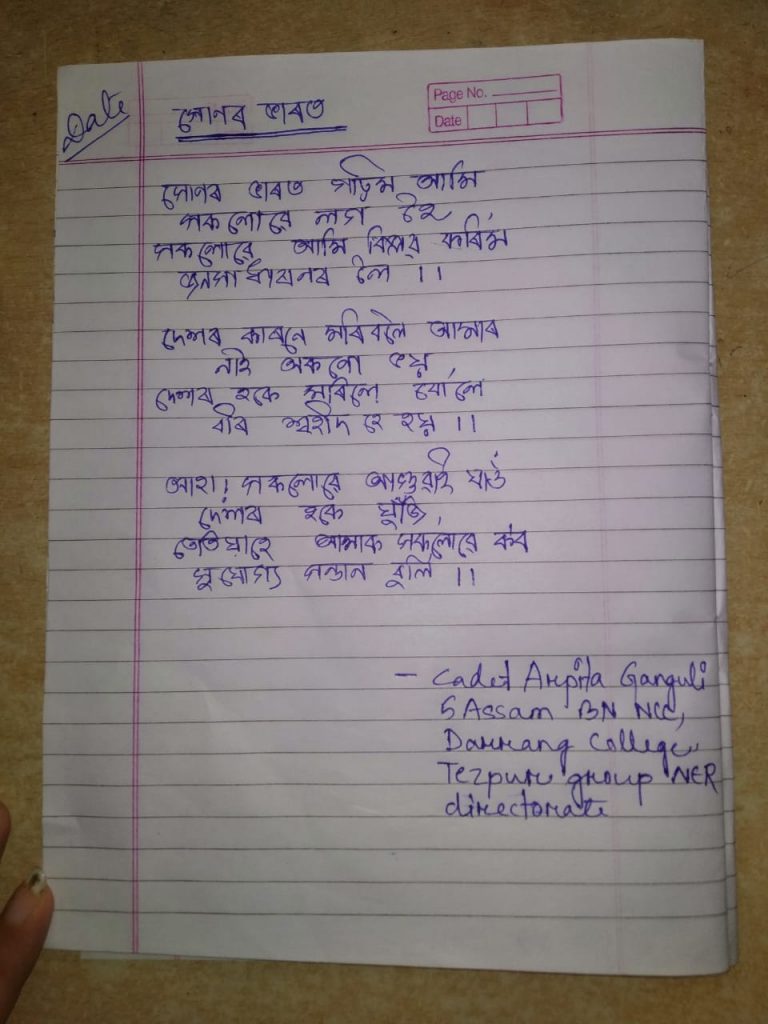 Date
সোণৰ ভাৰত
Page No.
Date
সোণৰ ভাৰত গঢ়িম আমি
সকলোৱে লগ হৈ,
সকলোৱে আমি বিপ্লৱ কৰিম
জনসাধাৰনৰ হৈ ।।
দেশৰ কাৰনে মৰিবলৈ আমাৰ
নাই অকনো ভয়,
দেশৰ হকে মৰিলে বোলে
বীৰ শ্বহীদ হে হয় ।।
আহা! সকলোৱে আগুৱাই যাওঁ
দেশৰ হকে যুঁজি,
তেতিয়াহে আমাক সকলোৱে ক'ব
সুযোগ্য সন্তান বুলি ।।
- Cadet Arpita Ganguli
5 Assam BN NCC,
Darrang College
Tezpur group NER
directorate